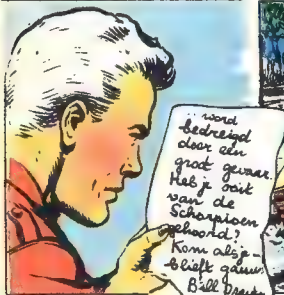 word
bedreigd
door een
groot gevaar.
Heb je ooit
van de
Schorpioen
gehoord?
Kom alsje-
blieft gauw.
Bill